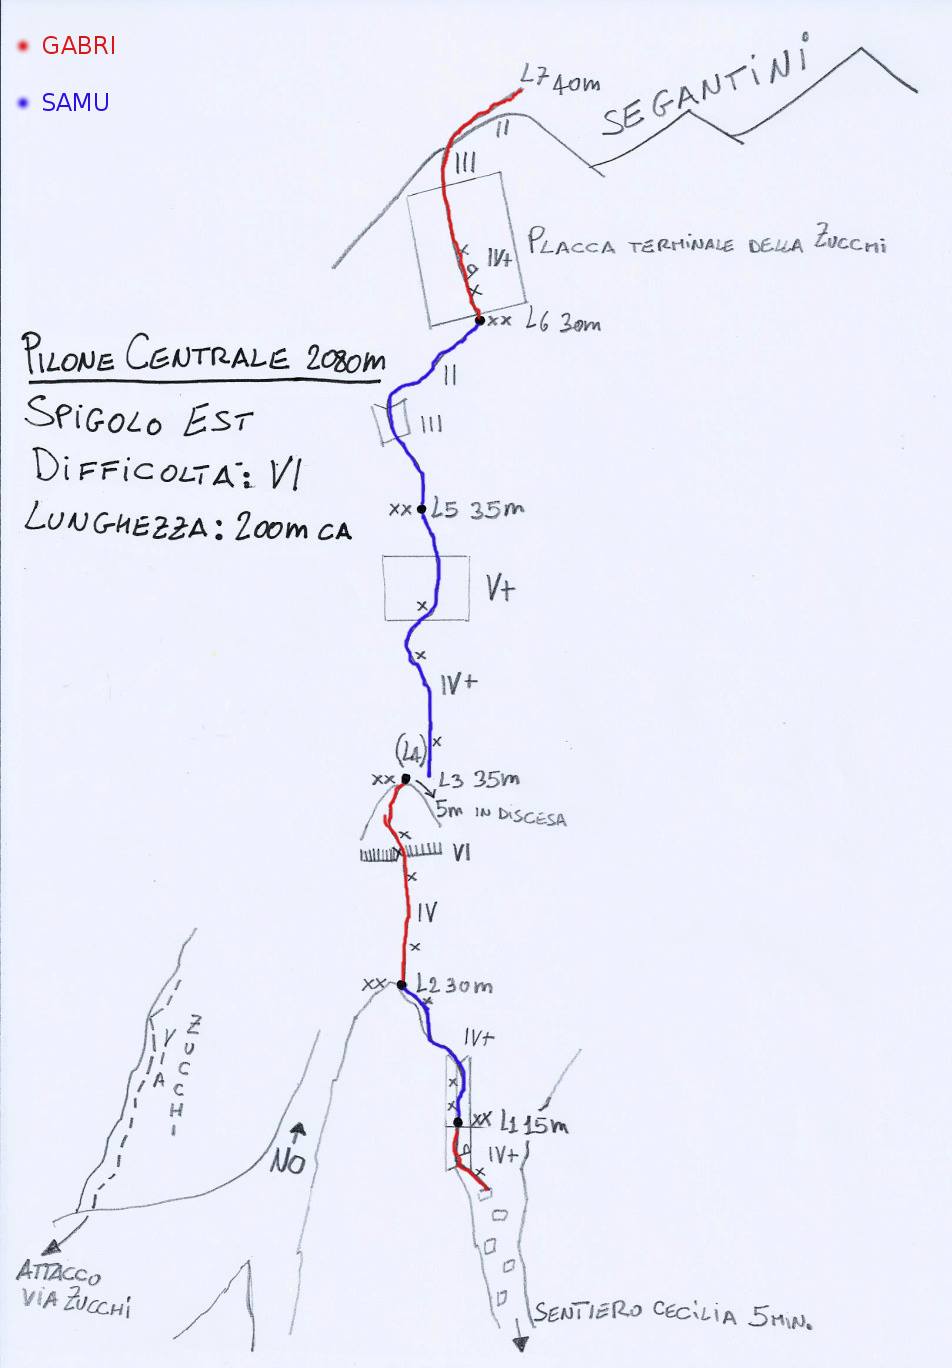 GABRI
SAMU
L7 40m
SEGANTINI
II
III
IV+
PLACCA TERMINALE DELLA ZUCCHI
XX L6 30m
PILONE CENTRALE 2080m
SPIGOLO EST
DIFFICOLTÀ: VI
LUNGHEZZA: 200m CA
II
III
XX L5 35m
V+
IV+
(L4)
XX L3 35m
5m IN DISCESA
VI
IV
XX L2 30m
IV+
XX L1 15m
IV+
VIA
ZUCCHI
NO
ATTACCO
VIA ZUCCHI
SENTIERO CECILIA 5 MIN.